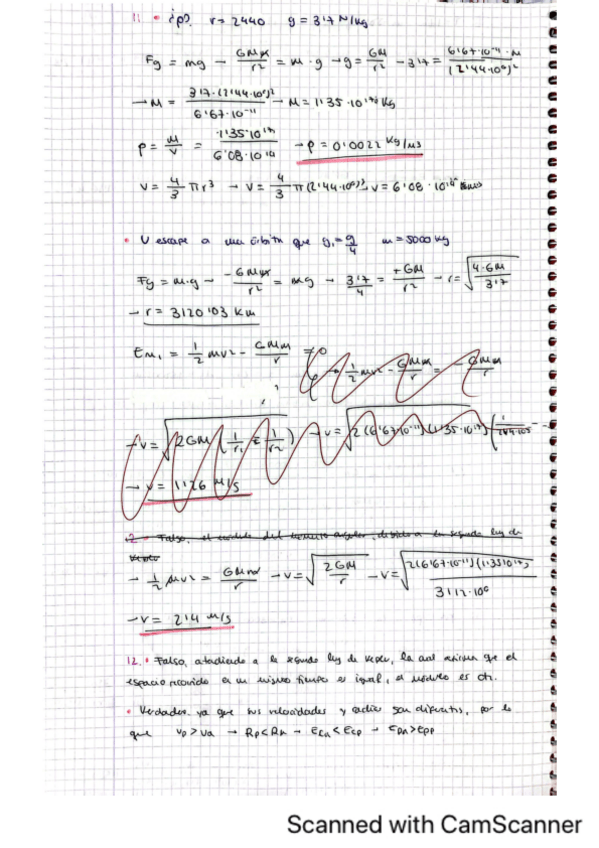 11. • ¿ρ? r = 2440 g = 3'7 N/kg
Fg = mg → GMm/r² = m·g → g = GM/r² → 3'7 = 6'67·10⁻¹¹·M/(2'44·10⁶)²
→ M = 3'7·(2'44·10⁶)²/6'67·10⁻¹¹ → M = 1'35·10 kg
ρ = M/V = 1'35·10/6'08·10 → ρ = 0'0022 kg/m³
V = 4/3 πr³ → V = 4/3 π(2'44·10⁶)³ → V = 6'08·10
• V escape a una órbita que g₁ = g/4 m = 5000 kg
Fg = m·g → -GMm/r² = mg → 3'7/4 = +GM/r² → r = √(4·GM/3'7)
→ r = 3120'03 km
Em₁ = 1/2 mv² - GMm/r = 0 → 1/2 mv² - GMm/r = - GMm/r
→ v = √(2GM(1/r₁ - 1/r₂)) → v = √(2(6'67·10⁻¹¹)(1'35·10¹⁷)(1/
→ v = 1126 m/s
2 • Falso, el módulo del momento angular, debido a la segunda ley de
Kepler
→ 1/2 mv² = GMm/r → v = √(2GM/r) → v = √(2(6'67·10⁻¹¹)(1'35·10¹⁷)/3'12·10⁶)
→ v = 2'4 m/s
12. • Falso, atendiendo a la segunda ley de Kepler, la cual afirma que el
espacio recorrido en un mismo tiempo es igual, el módulo es cte.
• Verdadero, ya que sus velocidades y radios son diferentes, por lo
que vp > va → Rp < Ra → Eca < Ecp → Epa > Epp
Scanned with CamScanner